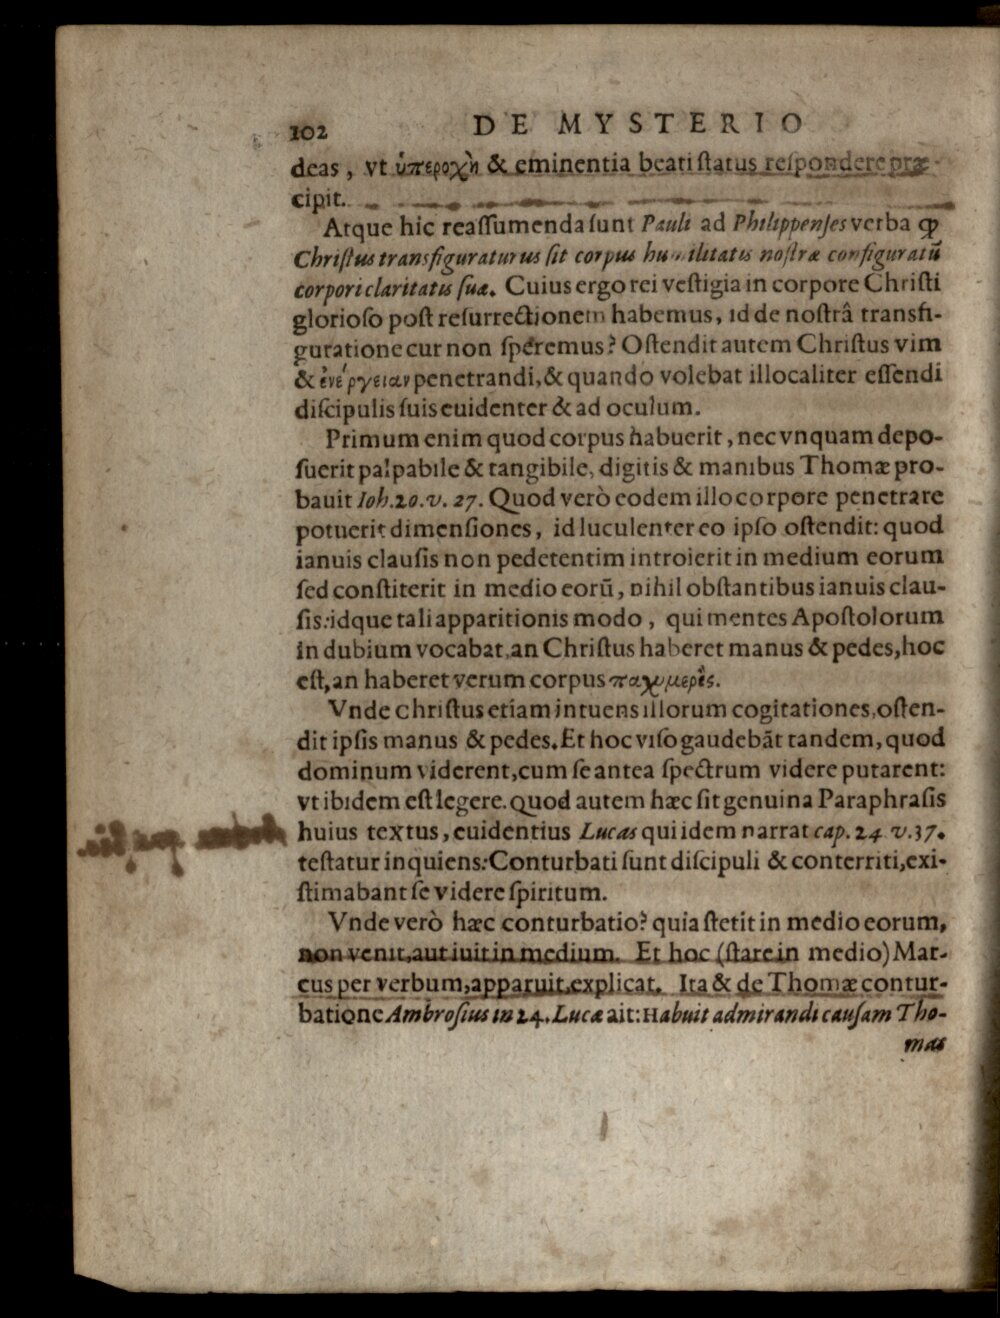 102 DE MYSTERIO
deas, vt ὑπεροχὴ & eminentia beati ſtatus reſpondere præ-
cipit.
Atque hic reaſſumenda ſunt Pauli ad Philippenſes verba ꝙ
Chriſtus transfiguraturus ſit corpus humilitatis noſtræ configuratū
corpori claritatis ſuæ. Cuius ergo rei veſtigia in corpore Chriſti
glorioſo poſt reſurrectionem habemus, id de noſtrâ transfi-
guratione cur non ſperemus? Oſtendit autem Chriſtus vim
& ἐνέργειαν penetrandi, & quando volebat illocaliter eſſendi
diſcipulis ſuis euidenter & ad oculum.
Primum enim quod corpus habuerit, nec vnquam depo-
ſuerit palpabile & tangibile, digitis & manibus Thomæ pro-
bauit Ioh. 20. v. 27. Quod verò eodem illo corpore penetrare
potuerit dimenſiones, id luculenter eo ipſo oſtendit: quod
ianuis clauſis non pedetentim introierit in medium eorum
ſed conſtiterit in medio eorū, nihil obſtantibus ianuis clau-
ſis: idque tali apparitionis modo, qui mentes Apoſtolorum
in dubium vocabat, an Chriſtus haberet manus & pedes, hoc
eſt, an haberet verum corpus παχυμερὲς.
Vnde chriſtus etiam intuens illorum cogitationes, oſten-
dit ipſis manus & pedes. Et hoc viſo gaudebāt tandem, quod
dominum viderent, cum ſe antea ſpectrum videre putarent:
vt ibidem eſt legere. Quod autem hæc ſit genuina Paraphraſis
huius textus, euidentius Lucas qui idem narrat cap. 24 v. 37.
teſtatur inquiens: Conturbati ſunt diſcipuli & conterriti, exi-
ſtimabant ſe videre ſpiritum.
Vnde verò hæc conturbatio? quia ſtetit in medio eorum,
non venit, aut iuit in medium. Et hoc (ſtare in medio) Mar-
cus per verbum, apparuit, explicat. Ita & de Thomæ contur-
batione Ambroſius in 24. Lucæ ait: Habuit admirandi cauſam Tho-
mas